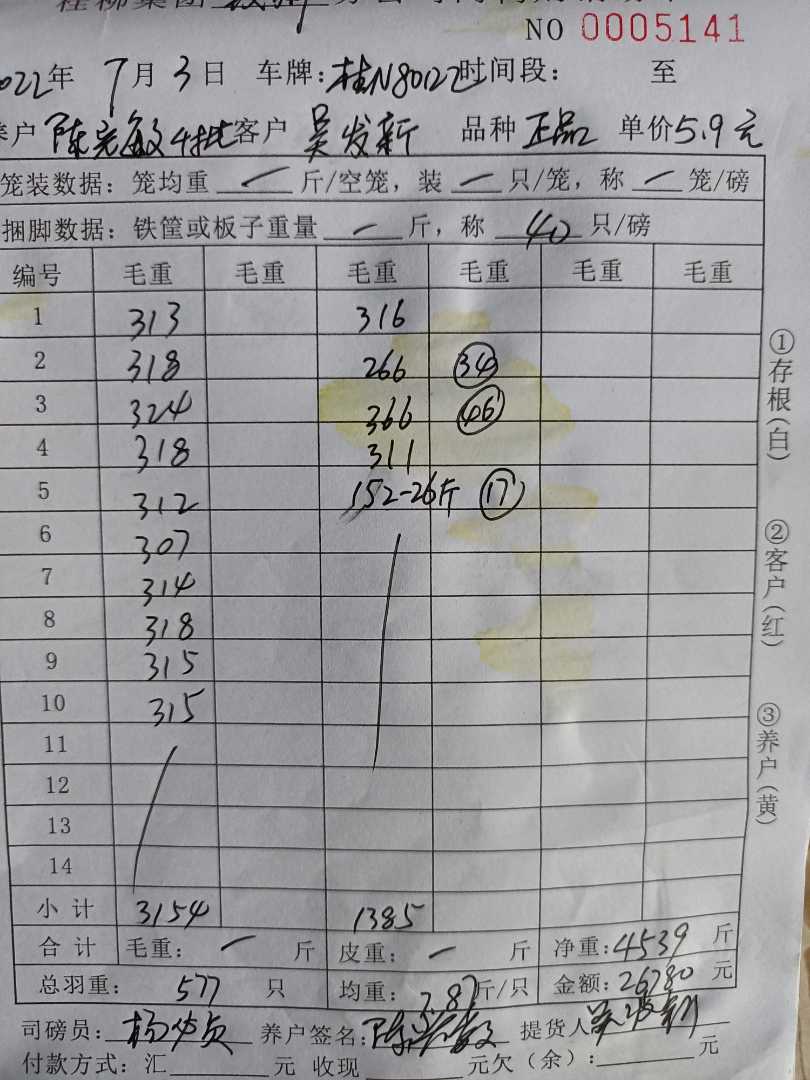 NO 0005141
2022年 7月3日 车牌:桂N80122 时间段: 至
养户 陈 敏4批 客户 吴发新 品种 正品 单价5.9元
笼装数据:笼均重 一 斤/空笼,装 一 只/笼,称 一 笼/磅
捆脚数据:铁筐或板子重量 一 斤,称 40 只/磅
编号 毛重 毛重 毛重 毛重 毛重 毛重
1 313 316
2 318 266 34
3 324 366 46
4 318 311
5 312 152-26斤 17
6 307
7 314
8 318
9 315
10 315
11
12
13
14
小计 3154 1385
合计 毛重: 一 斤 皮重: 一 斤 净重:4539 斤
总羽重: 577 只 均重: 7.87 斤/只 金额:26780 元
司磅员:杨 贞 养户签名:陈 敏 提货人 吴发新
付款方式:汇 元 收现 元欠(余): 元
①存根(白)
②客户(红)
③养户(黄)